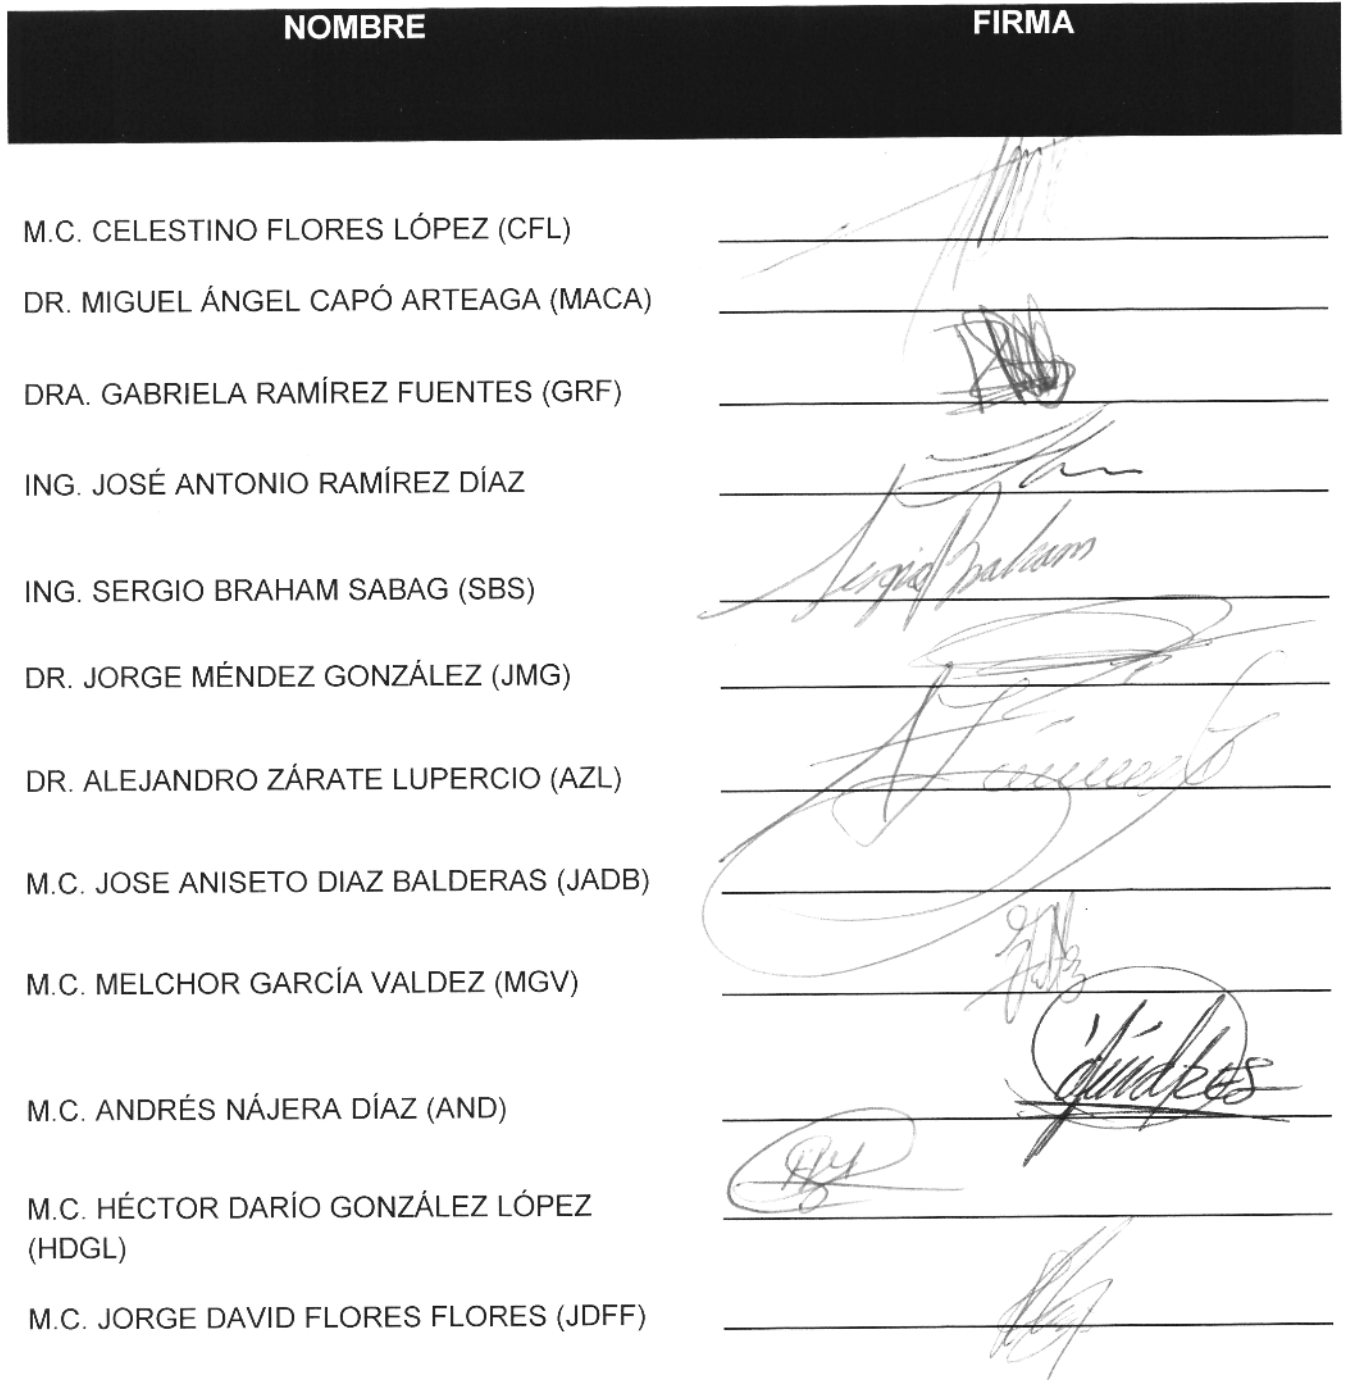 NOMBRE FIRMA
M.C. CELESTINO FLORES LÓPEZ (CFL)
DR. MIGUEL ÁNGEL CAPÓ ARTEAGA (MACA)
DRA. GABRIELA RAMÍREZ FUENTES (GRF)
ING. JOSÉ ANTONIO RAMÍREZ DÍAZ
ING. SERGIO BRAHAM SABAG (SBS)
DR. JORGE MÉNDEZ GONZÁLEZ (JMG)
DR. ALEJANDRO ZÁRATE LUPERCIO (AZL)
M.C. JOSE ANISETO DIAZ BALDERAS (JADB)
M.C. MELCHOR GARCÍA VALDEZ (MGV)
M.C. ANDRÉS NÁJERA DÍAZ (AND)
M.C. HÉCTOR DARÍO GONZÁLEZ LÓPEZ
(HDGL)
M.C. JORGE DAVID FLORES FLORES (JDFF)